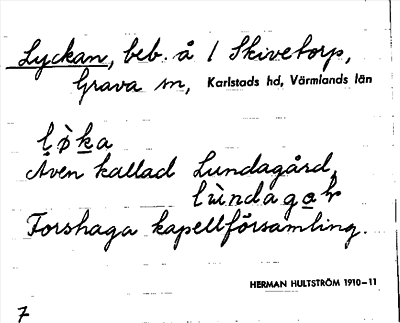 Lyckan, beb. å 1 Skivetorp,
Grava sn, Karlstads hd, Värmlands län
lø̀ka
Även kallad Lundagård,
lùndagaꞛ
Forshaga kapellförsamling.
HERMAN HULTSTRÖM 1910–11
7